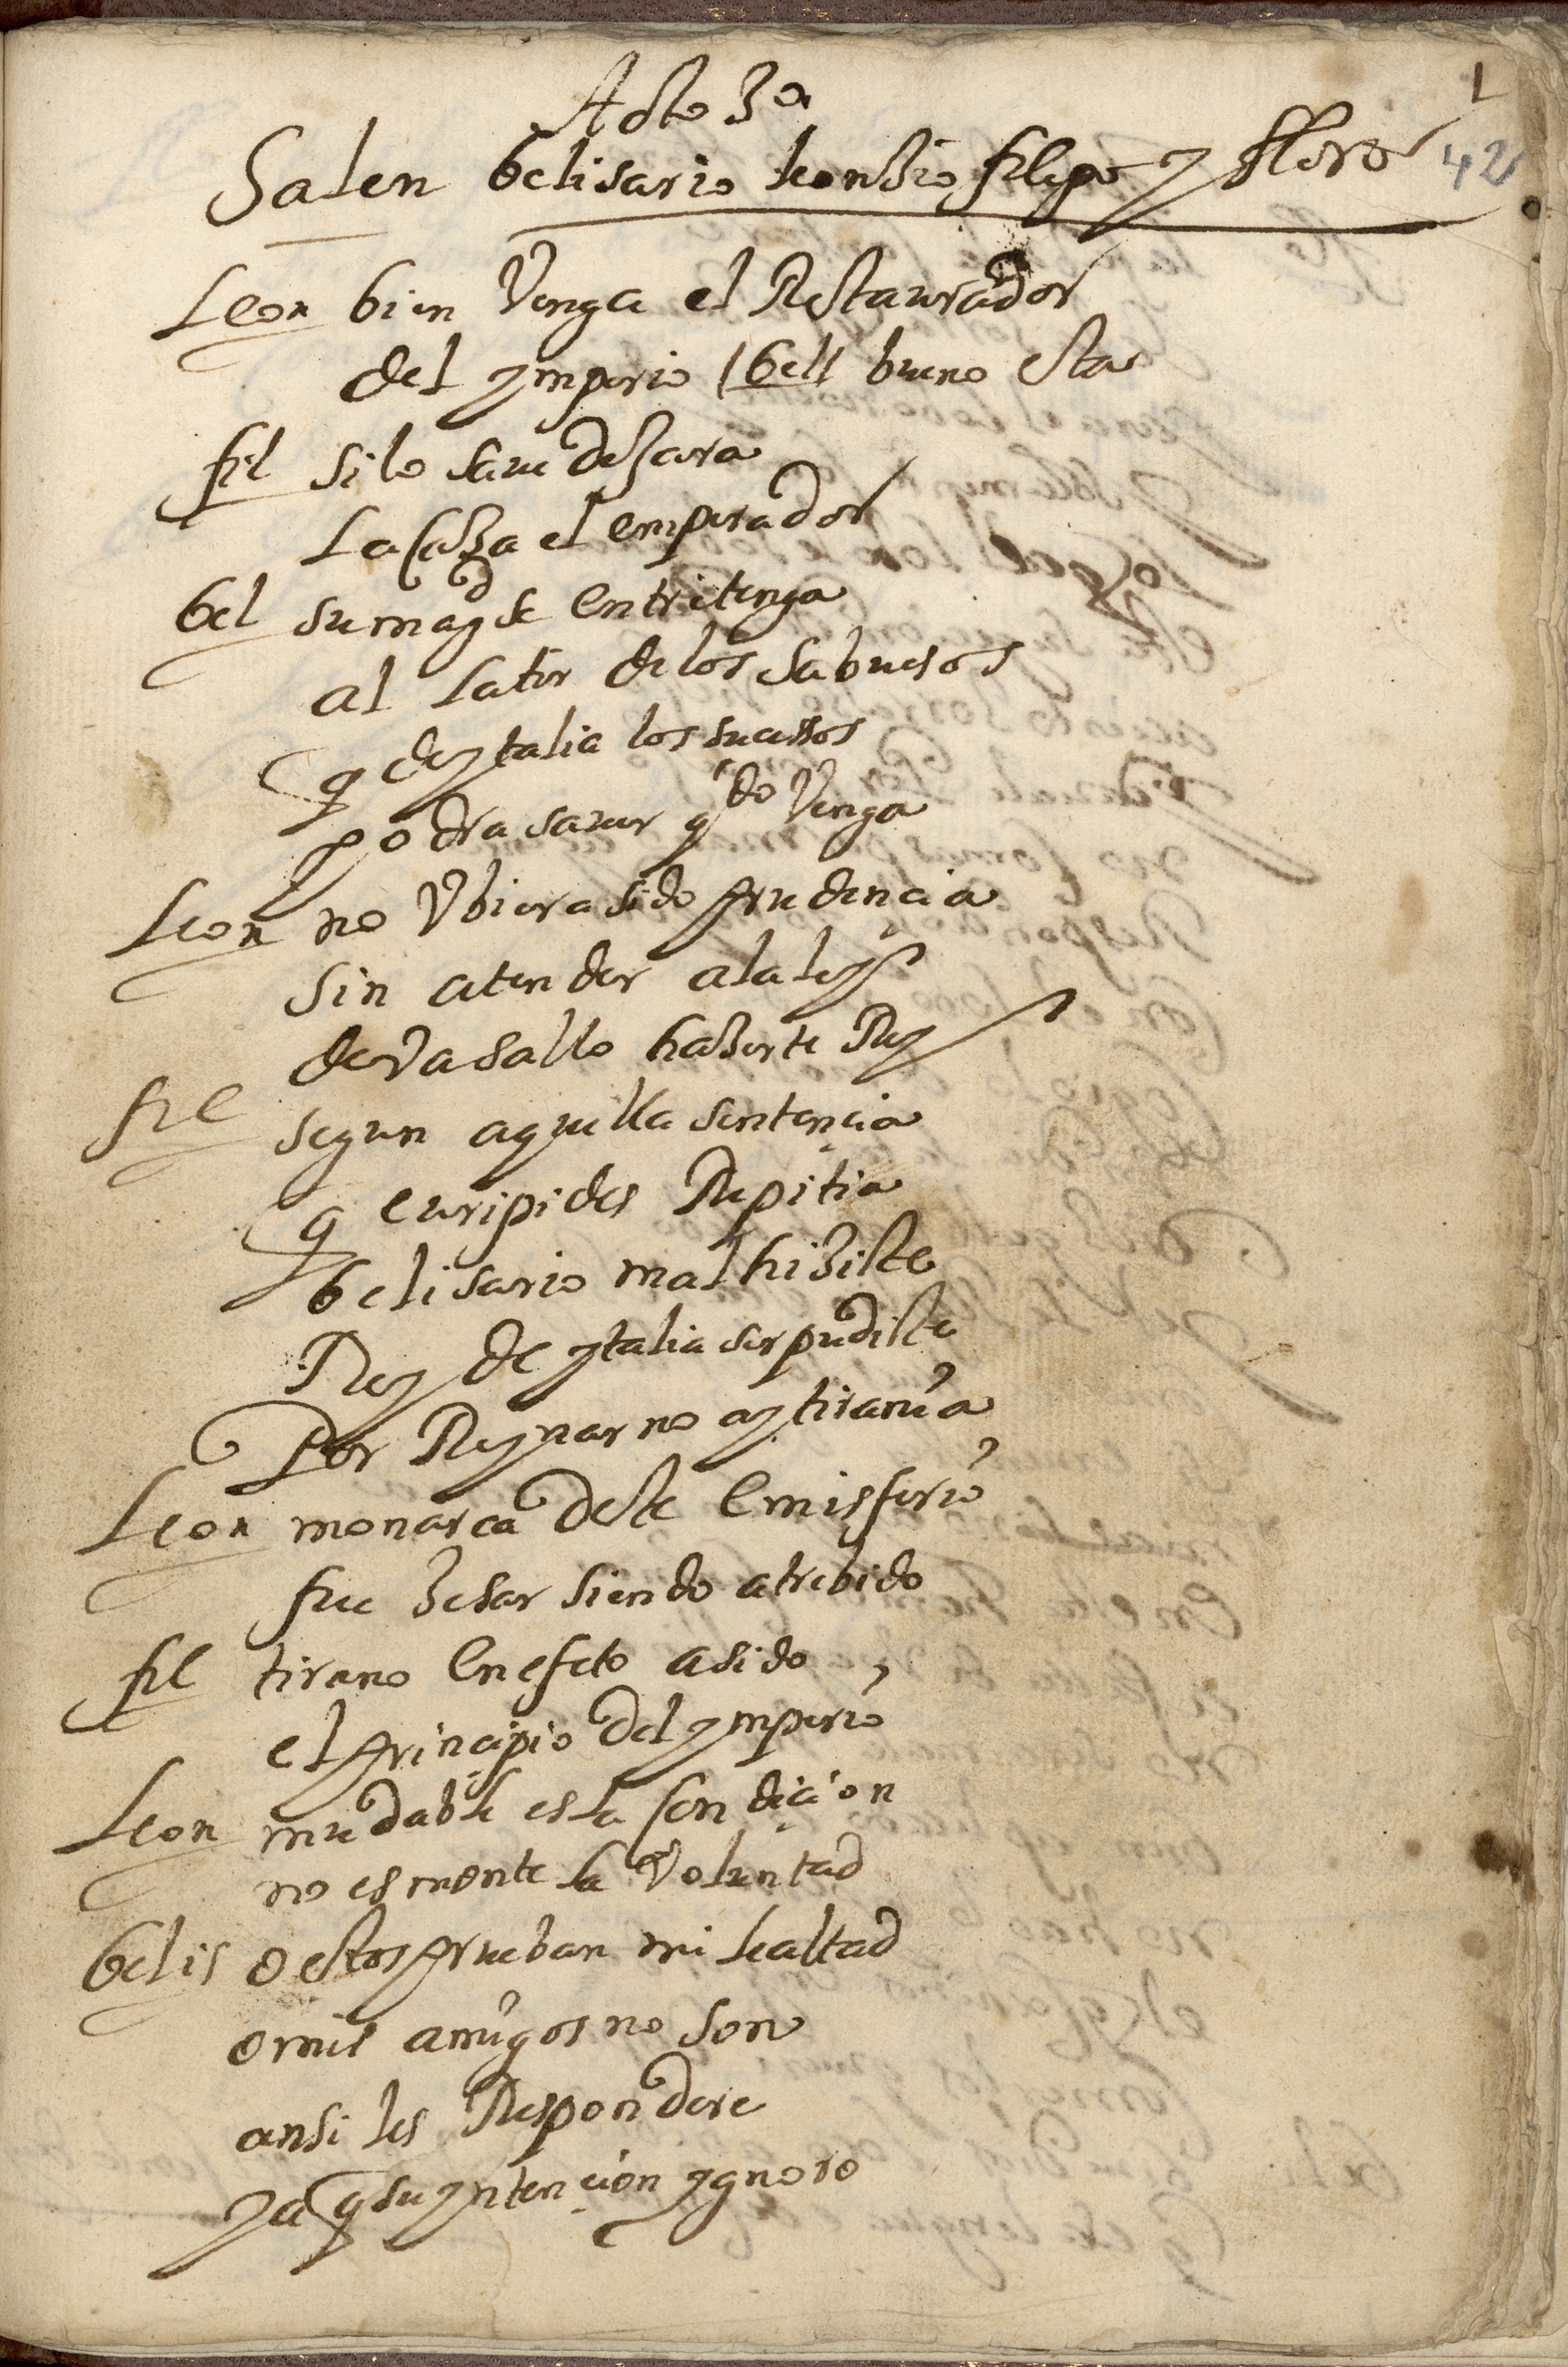 1
Acto 3º
Salen belisario leonzio filipo y floro
42
Leon bien Venga el Restaurador
del ymperio | bell bueno esta
fil si lo save dexara
La Caza el emperador
bel su magd se entretenga
al Latir de los sabuesos
q de ytalia los sucessos
podra saver qdo Venga
Leon no Vbiera sido prudencia
sin atender a la ley
de Vasallo hazerte Rey
fil segun aquella sentencia
q euripides Repitia
belisario mal hiziste
Rey de ytalia ser pudiste
Por Reynar no ay tirania
Leon monarca deste emisferio
fue zesar siendo atrebido
fil tirano en efeto a sido
el principio del ymperio
Leon mudable es la Condicion
no es monte la Voluntad
belis o estos prueban mi lealtad
o mis amigos no son
ansi les Respondere
ya q su yntencion ygnoro